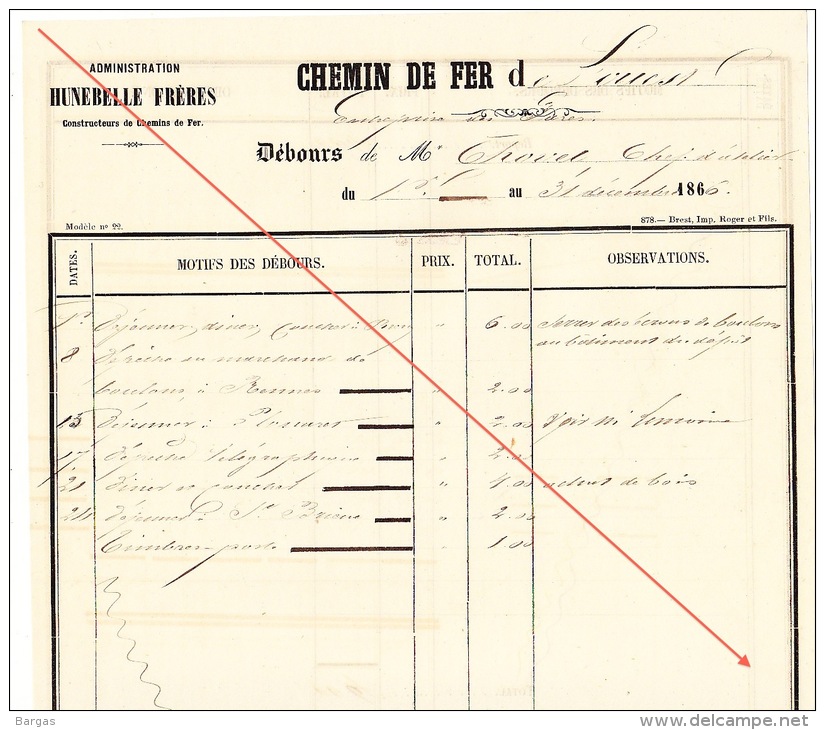 ADMINISTRATION
HUNEBELLE FRÈRES
Constructeurs de Chemins de Fer.
CHEMIN DE FER de l'ouest
Entreprise
Débours de Mr Chef d'atelier
du 1er au 31 décembre 1866.
Modèle nº 22.
878.— Brest, Imp. Roger et Fils.
DATES. MOTIFS DES DÉBOURS. PRIX. TOTAL. OBSERVATIONS.
1er Déjeuner, diner, coucher à " 6.00 serrer des écrous de boulons
au bâtiment du dépôt
8 dépêche au marchand de
boulons à Rennes " 2.00
13 Déjeuner à Plouaret " 2.00 Voir
17 dépêche télégraphique " 2.00
21 diner et coucher " 4.00 achat de bois
24 déjeuner à St Brieuc " 2.00
Timbres-poste " 1.00
Bargas
www.delcampe.net